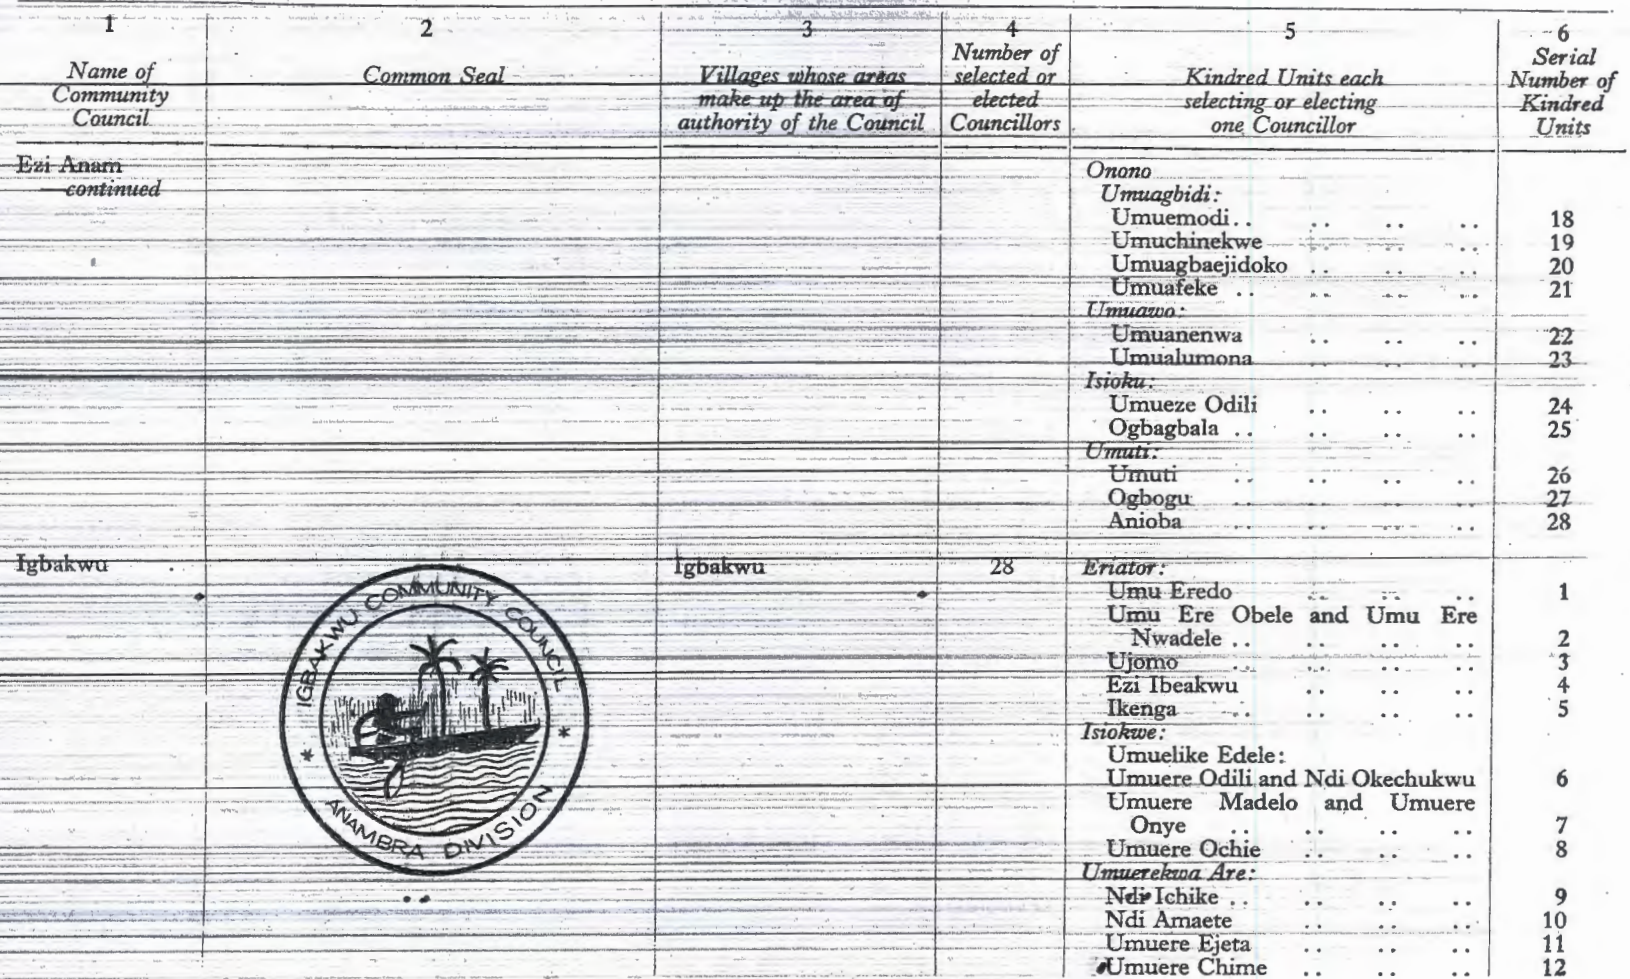 1 2 3 4 5 6
Name of Community Council
Common Seal
Villages whose areas make up the area of authority of the Council
Number of selected or elected Councillors
Kindred Units each selecting or electing one Councillor
Serial Number of Kindred Units
Ezi Anam
—continued
Onono
Umuagbidi:
Umuemodi .. .. .. .. 18
Umuchinekwe .. .. .. 19
Umuagbaejidoko .. .. .. 20
Umuafeke .. .. .. .. 21
Umuawo:
Umuanenwa .. .. .. 22
Umualumona .. .. .. 23
Isioku:
Umueze Odili .. .. .. 24
Ogbagbala .. .. .. .. 25
Umuti:
Umuti .. .. .. .. 26
Ogbogu .. .. .. .. 27
Anioba .. .. .. .. 28
Igbakwu
IGBAKWU COMMUNITY COUNCIL
* ANAMBRA DIVISION *
Igbakwu
28
Eriator:
Umu Eredo .. .. .. 1
Umu Ere Obele and Umu Ere
Nwadele .. .. .. .. 2
Ujomo .. .. .. .. 3
Ezi Ibeakwu .. .. .. 4
Ikenga .. .. .. .. 5
Isiokwe:
Umuelike Edele:
Umuere Odili and Ndi Okechukwu 6
Umuere Madelo and Umuere
Onye .. .. .. .. 7
Umuere Ochie .. .. .. 8
Umuerekwa Are:
Ndi Ichike .. .. .. .. 9
Ndi Amaete .. .. .. 10
Umuere Ejeta .. .. .. 11
Umuere Chime .. .. .. 12